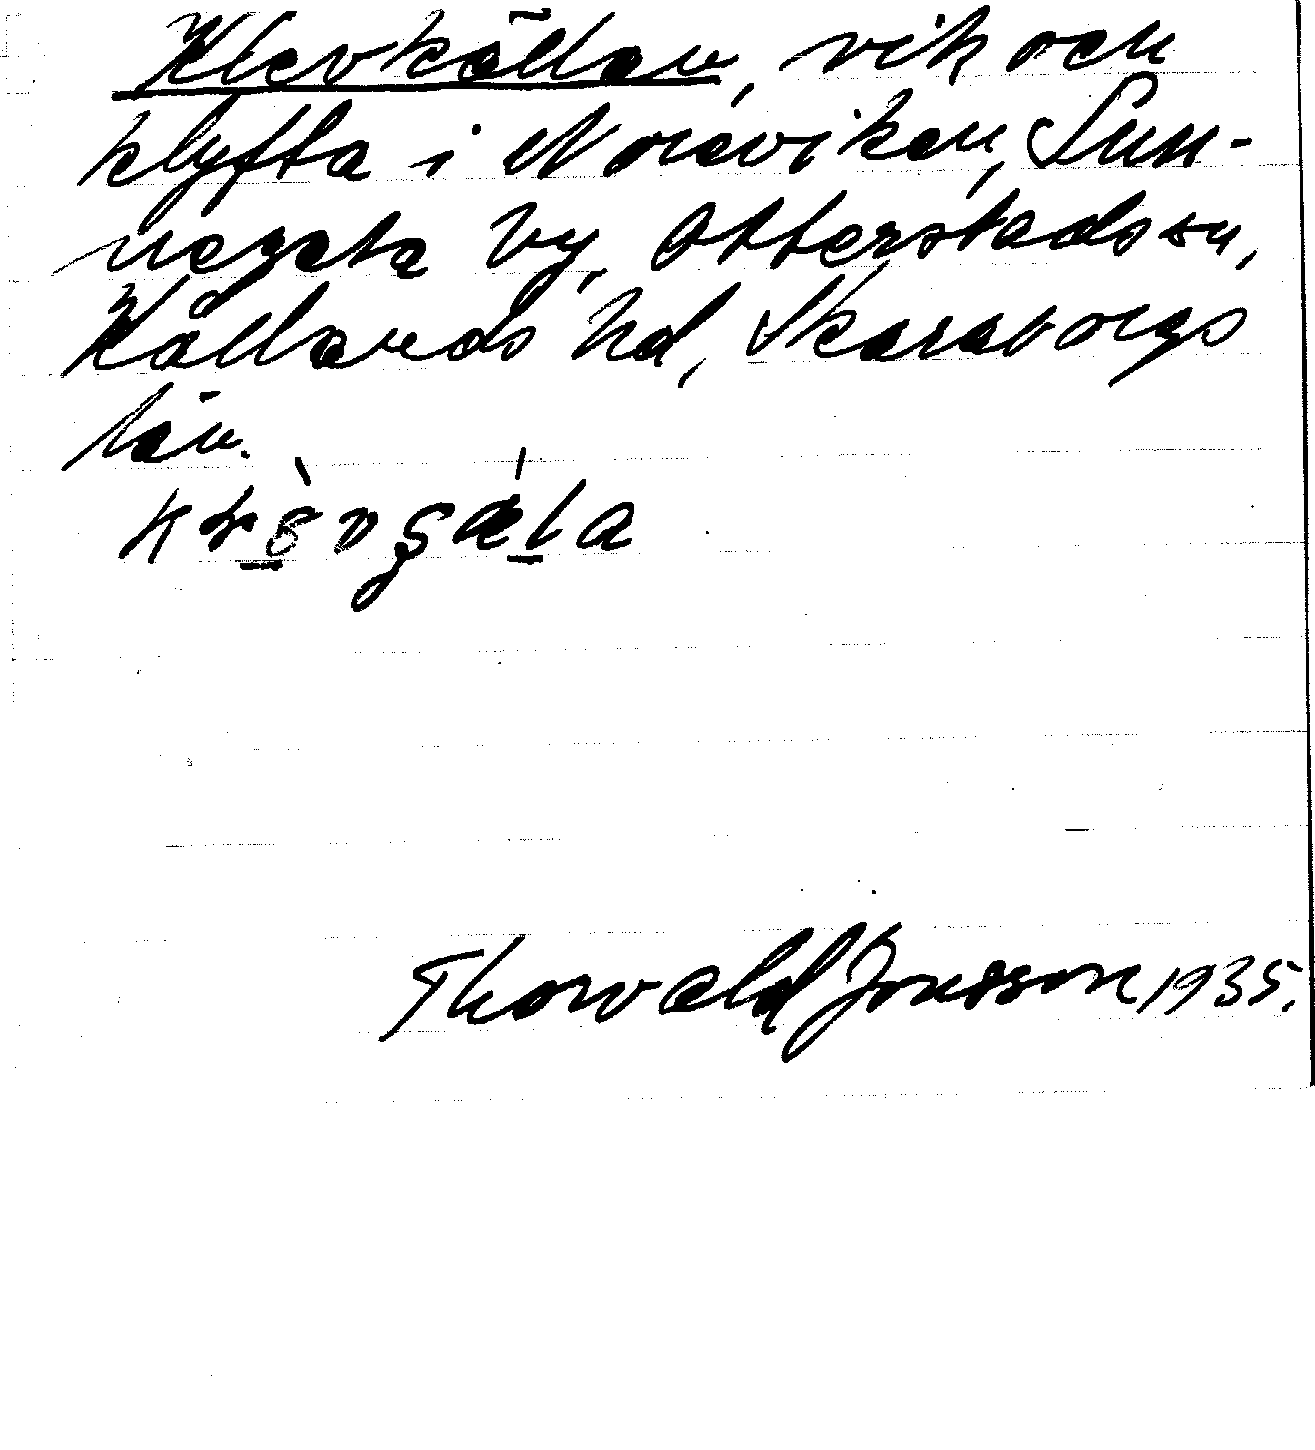 Klevkällan, vik och
klyfta i Noreviken, Sun-
nersta by, Otterstads sn,
Kållands hd, Skaraborgs
län.
Thorvald Jonsson 1935.